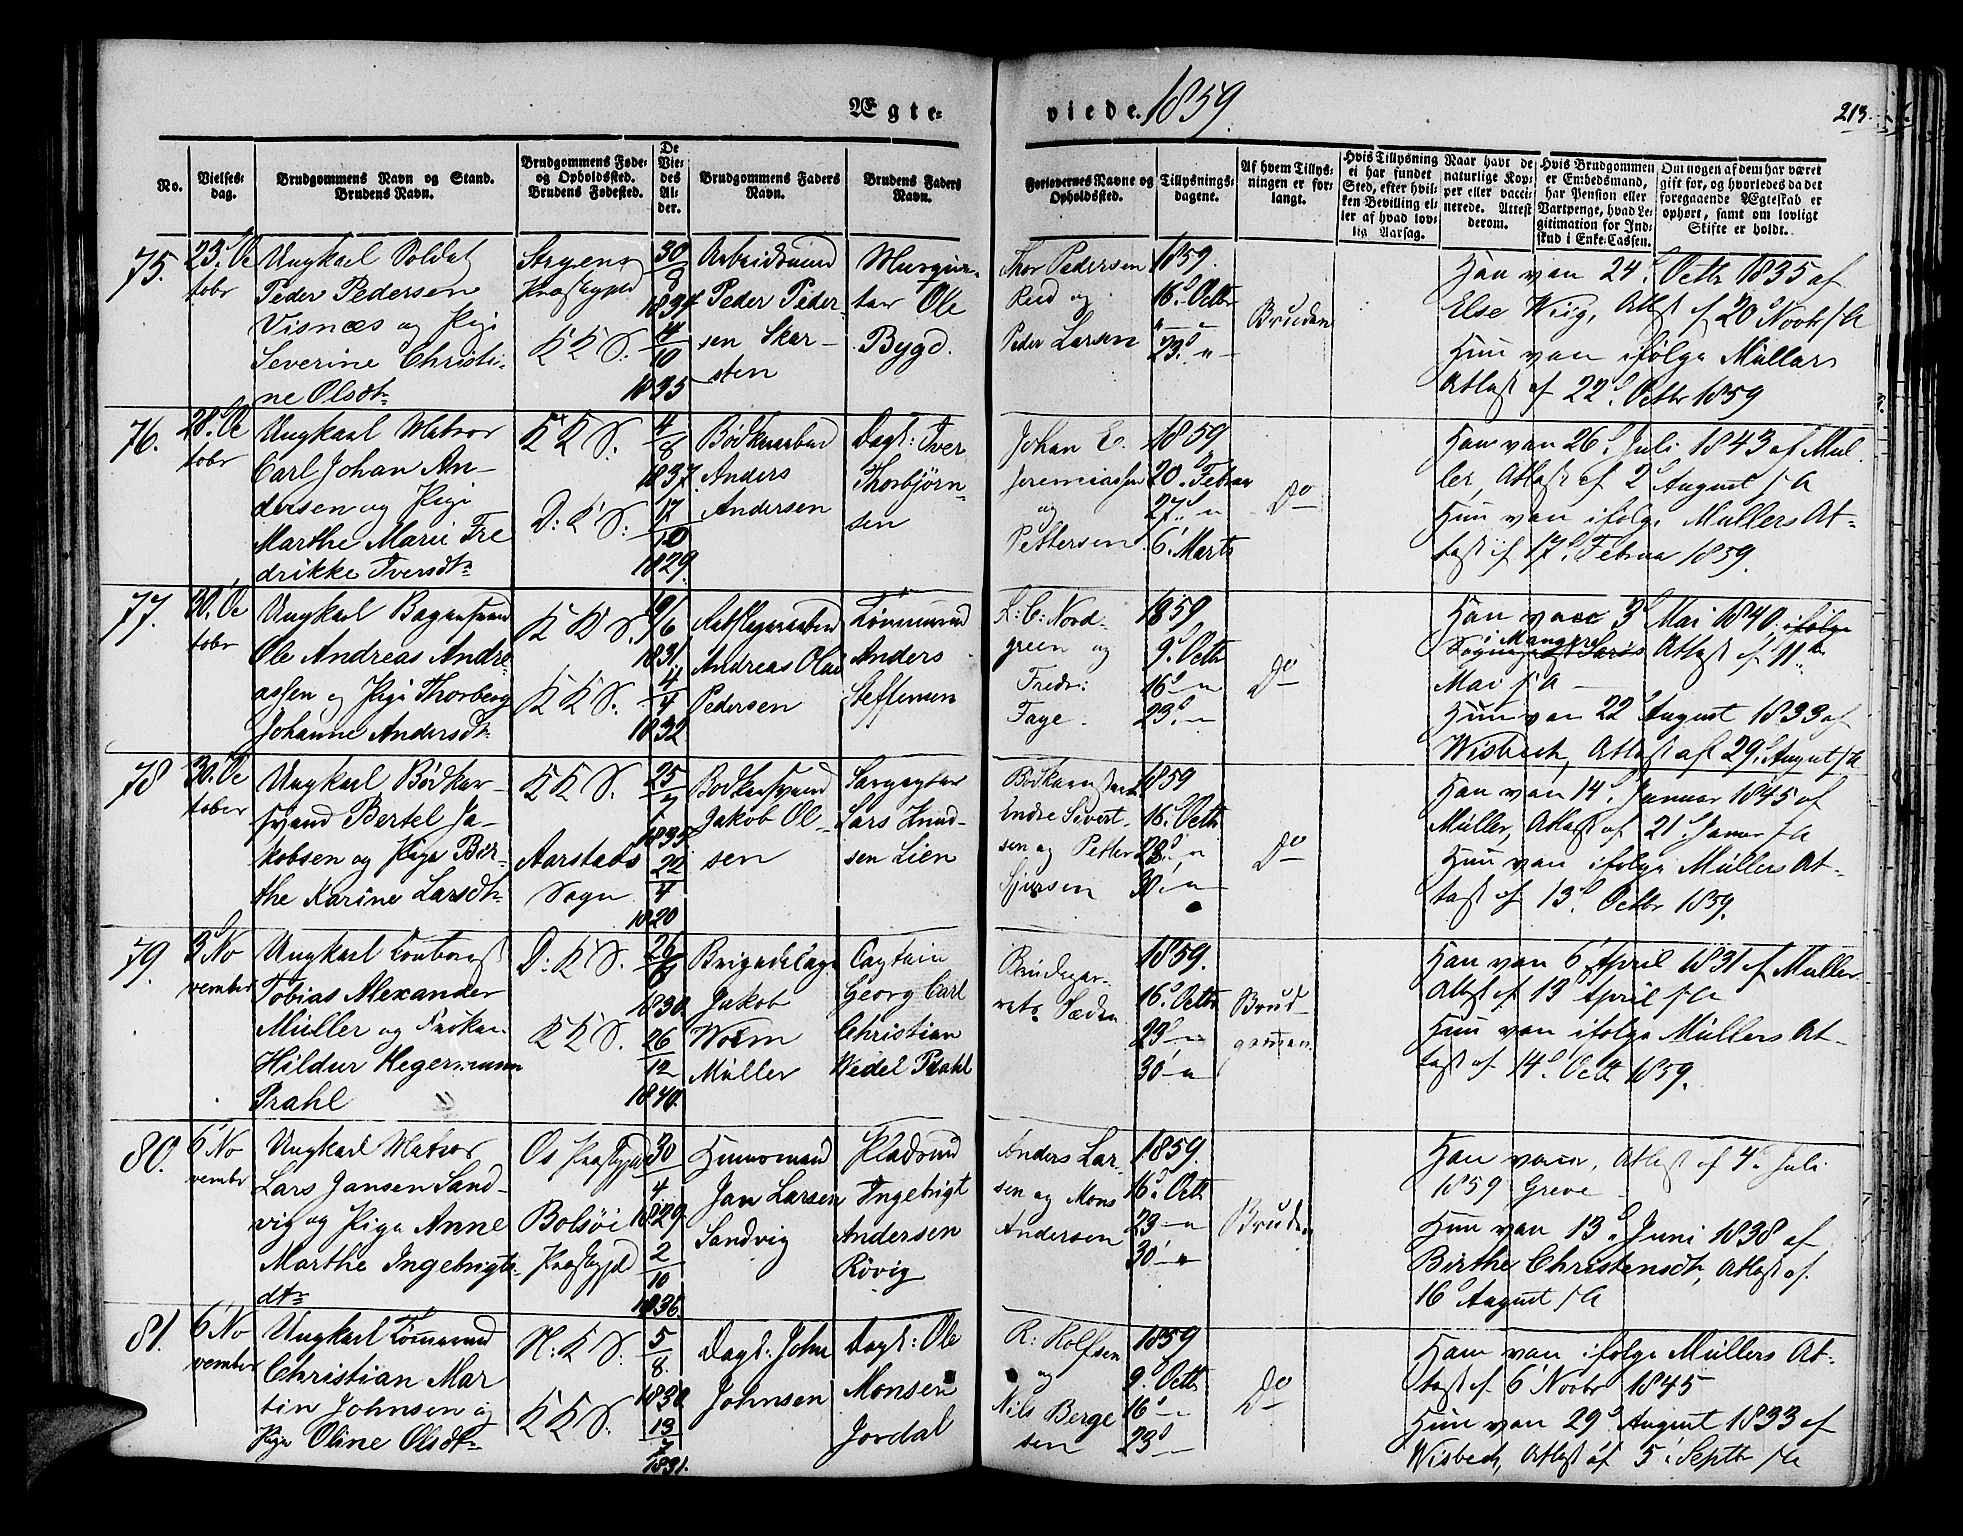 Ægte-
viede. 1859.
213.
No.
Vielses-
dag.
Brudgommens Navn og Stand.
Brudens Navn.
Brudgommens Føde-
og Opholdssted.
Brudens Fødested.
De
Vie-
des
Al-
der.
Brudgommens Faders
Navn.
Brudens Faders
Navn.
Forlovernes Navne og
Opholdssted.
Tillysnings-
dagene.
Af hvem Tillys-
ningen er for-
langt.
Hvis Tillysning
ei har fundet
Sted, efter hvil-
ken Bevilling el-
ler af hvad lov-
lig Aarsag.
Naar havt de
naturlige Kop-
per eller vacci-
nerede. Attest
derom.
Hvis Brudgommen
er Embedsmand,
har Pension eller
Vartpenge, hvad Le-
gitimation for Ind-
skud i Enke-Cassen.
Om nogen af dem har været
gift før, og hvorledes da det
foregaaende Ægteskab er
ophørt, samt om lovligt
Skifte er holdt.
75.
23. Oc
tobr
Ungkarl Soldat
Peder Pedersen
Visnæs og Pige
Severine Christi-
ne Olsdtr
Stryens
Præstegjeld
K K S.
30/8
1834
4/10
1835
Arbeidsmand
Peder Peder-
sen Skar-
sten
Murquar-
tar Ole
Bygd.
Thor Pedersen
Reid og
Peder Larsen
1859.
16d Octbr
23d "
Bruden
Han vac 24d Octbr 1835 af
Else Wiig, Attest af 20d Novbr s. A
Hun vac ifølge Müllers
Attest af 22d Octbr 1859
76.
28. Oc
tobr
Ungkarl Matros
Carl Johan An-
dersen og Pige
Marthe Marie Fre
drikke Iversdtr
K K S.
D: K S.
4/8
1837.
17/10
1829.
Bødkersvend
Anders
Andersen
Dagk: Iver
Thorbjørn-
sen
Johan E.
Jeremiassen
og
Pettersen
1859
20d Februar
27d "
6' Marts
Do
Han vac 26d Juli 1843 af Mül
ler, Attest af 2d August s. A
Hun vac ifølge Müllers At-
test af 17d Februar 1859.
77.
30. Oc
tobr
Ungkarl Bagersvend
Ole Andreas Andre
assen og Pige Thorberg
Johanne Andersdtr
K K S.
K K S.
19/6
1831
4/4
1832
Andreas Olai
Pedersen
Tømmermd
Anders
Steffensen
L: C: Nord-
green og
Fredr:
Faye.
1859
9d Octbr
16d "
23d "
Do
Han vacc 3d Mai 1840 ifølge
Attest af 11te
Mai s A
Hun vac 22 August 1833 af
Wisbech, Attest af 29d August s A
78
30. Oc
tober
Ungkarl Bødker-
svend Bertel Ja-
kobsen og Pige Ber-
the Karine Larsdtr
K K S.
Aarstads
Sogn
25/7
1835
22/4
1820
Bødkersvend
Jakob Ol-
sen
Lars Knud-
sen Lien
Bødkersvend
Endre Sivert-
sen og Petter
Sjursen
1859
16d Octbr
23d "
30' "
Do
Han vac 14d Januar 1845 af
Müller, Attest af 21d Januar s A
Hun vac ifølge Müllers At-
test af 13d Octbr 1859.
79.
3d No
vember
Ungkarl
Tobias Alexander
Müller og Frøken
Hildur Hegermann
Prahl
D: K S.
K K S.
26/8
1830.
26/12
1840.
Brigadelæge
Jakob
Worm
Müller
Captain
Georg Carl
Christian
Wedel Prahl
1859.
16d Octbr
23d "
30' "
Brud
gommen.
Han vac 6' April 1831 af Müller
Attest af 13d April s. A
Hun vac ifølge Müllers At-
test af 14d Octbr 1859.
80.
6' No
vember
Ungkarl Matros
Lars Jansen Sand-
vig og Pige Anne
Marthe Ingebrigts-
dtr
Os Præstegjeld
Bolsöi
Præstegjeld
30/4
1829
2/10
1836.
Huusmand
Jan Larsen
Sandvig
Ingebrigt
Andersen
Røvig
Anders Lar-
sen og Mons
Andersen
1859
16d Octbr
23 "
30' "
Bruden
Han vacc, Attest af 4d Juli
1859 Greve
Hun vac 13d Juni 1838 af
Birthe Christensdtr, Attest af
16d August s A
81.
6' No
vember
Ungkarl Tømmermd
Christian Mar
tin Johnsen og
Pige Oline Olsdtr
N: K S.
K K S.
5/8.
1830
13/7
1831.
Dagk: John
Johnsen
Dagk: Ole
Monsen
Jordal
R: Rolfsen
og
Nils Berge
sen
1859
9d Octbr
16d "
23d "
Do
Han vac ifølge Müllers At-
test af 6' Novbr 1845
Hun vac 29d August 1833 af
Wisbech, Attest af 5' Septbr s A